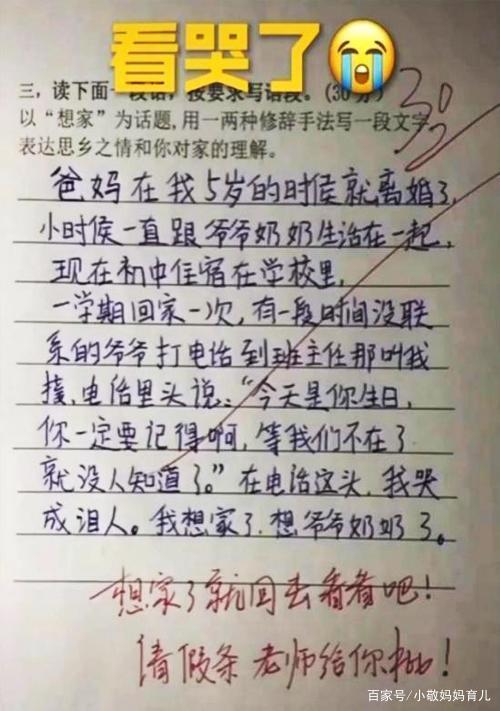 看哭了
三、读下面一段话，按要求写语段。(30分)
以“想家”为话题,用一两种修辞手法写一段文字,
表达思乡之情和你对家的理解。
30
爸妈在我5岁的时候就离婚了,
小时侯一直跟爷爷奶奶生活在一起,
现在初中住宿在学校里,
一学期回家一次,有一段时间没联
系的爷爷打电话到班主任那叫我
接,电话里头说：“今天是你生日,
你一定要记得啊,等我们不在了
就没人知道了。”在电话这头,我哭
成泪人。我想家了,想爷爷奶奶了。
想家了就回去看看吧！
请假条 老师给你批！
百家号/小敬妈妈育儿